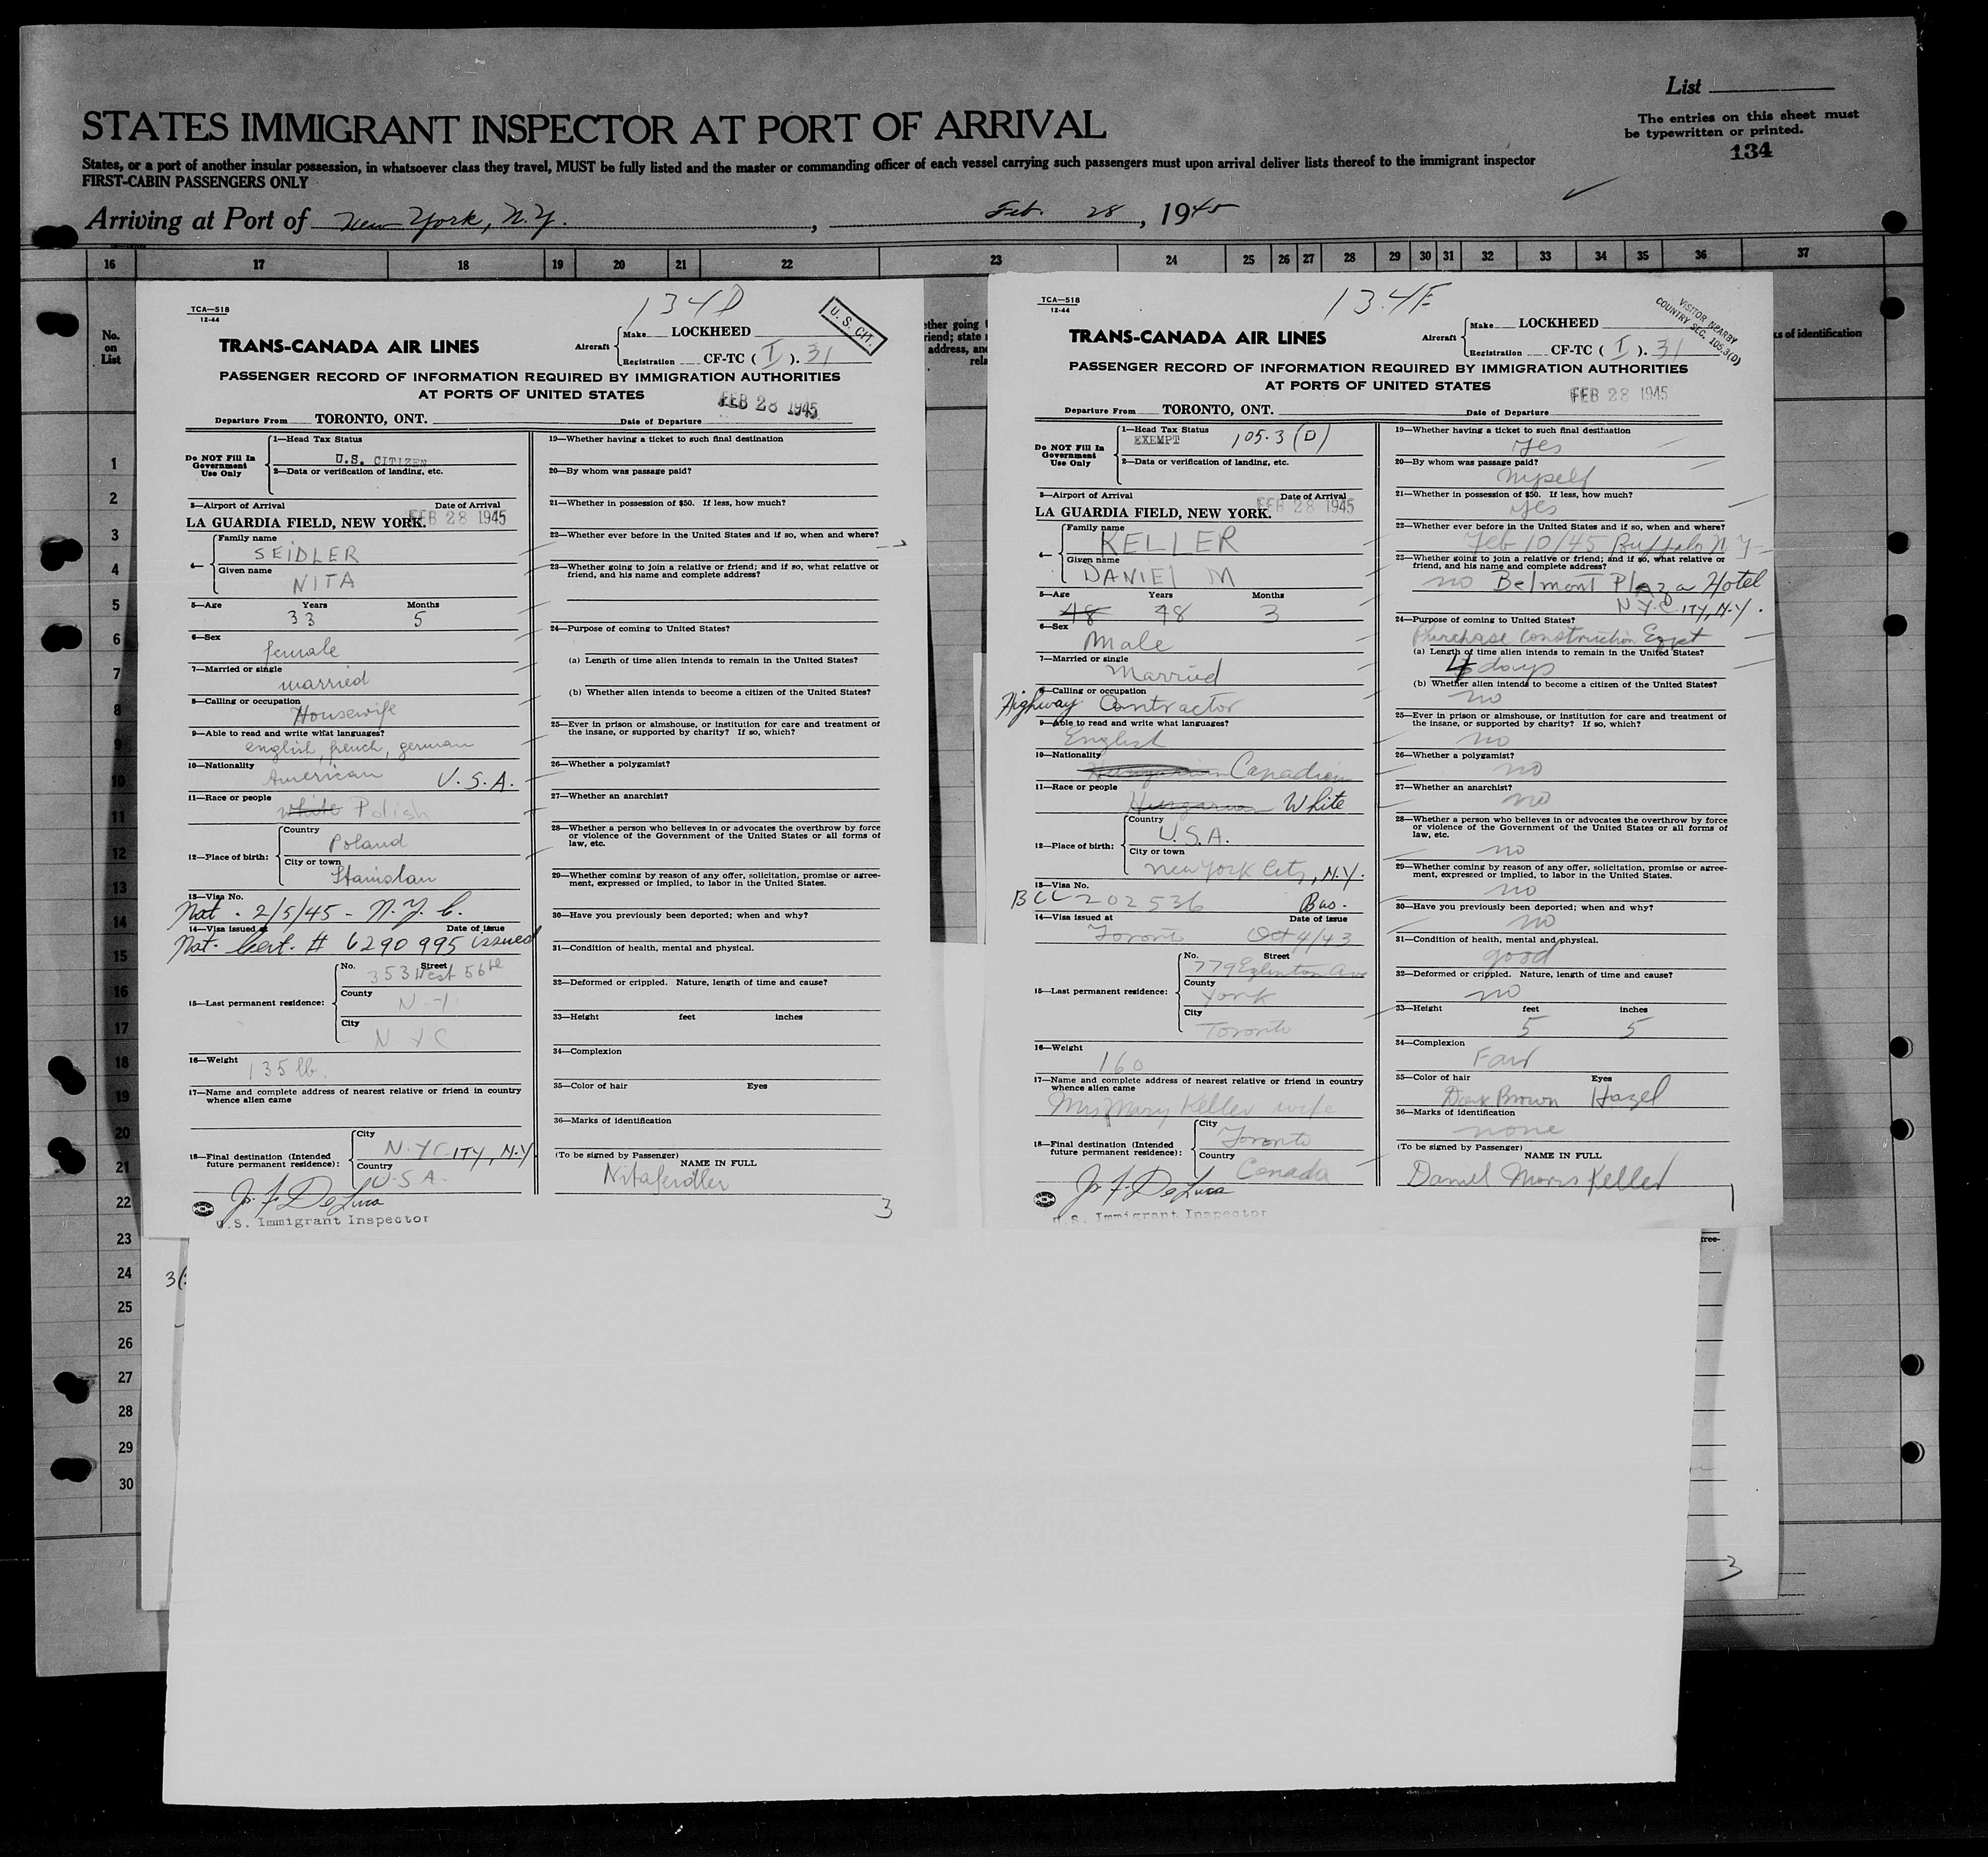 List
STATES IMMIGRANT INSPECTOR AT PORT OF ARRIVAL
The entries on this sheet must
be typewritten or printed.
134
States, or a port of another insular possession, in whatsoever class they travel, MUST be fully listed and the master or commanding officer of each vessel carrying such passengers must upon arrival deliver lists thereof to the immigrant inspector
FIRST-CABIN PASSENGERS ONLY
Arriving at Port of New York, N.Y. , Feb. 28, 1945
16 17 18 19 20 21 22 23 24 25 26 27 28 29 30 31 32 33 34 35 36 37
No.
on
List
ks of identification
1
2
3
4
5
6
7
8
9
10
11
12
13
14
15
16
17
18
19
20
21
22
23
24
25
26
27
28
29
30
TCA—518
12-44
134D
U. S. CIT.
TRANS-CANADA AIR LINES
Aircraft Make LOCKHEED
Registration CF-TC ( I ). 31
PASSENGER RECORD OF INFORMATION REQUIRED BY IMMIGRATION AUTHORITIES
AT PORTS OF UNITED STATES
FEB 28 1945
Departure From TORONTO, ONT. Date of Departure
Do NOT Fill In Government Use Only
1—Head Tax Status
U.S. CITIZEN
2—Data or verification of landing, etc.
3—Airport of Arrival Date of Arrival
LA GUARDIA FIELD, NEW YORK. FEB 28 1945
4— Family name
SEIDLER
Given name
NITA
5—Age Years Months
33 5
6—Sex
female
7—Married or single
married
8—Calling or occupation
Housewife
9—Able to read and write what languages?
english, french, german
10—Nationality
American U.S.A.
11—Race or people
white Polish
12—Place of birth: Country
Poland
City or town
Stanislau
13—Visa No.
Nat. 2/5/45 - N.Y.C.
14—Visa issued at Date of issue
Nat. Cert. # 6290995 issued
15—Last permanent residence: No. Street
353 West 56
County
N-Y
City
N Y C
16—Weight
135 lb.
17—Name and complete address of nearest relative or friend in country
whence alien came
18—Final destination (Intended
future permanent residence): City
N.Y.CITY, N.Y
Country
U.S.A.
U.S. Immigrant Inspector
19—Whether having a ticket to such final destination
20—By whom was passage paid?
21—Whether in possession of $50. If less, how much?
22—Whether ever before in the United States and if so, when and where?
23—Whether going to join a relative or friend; and if so, what relative or
friend, and his name and complete address?
24—Purpose of coming to United States?
(a) Length of time alien intends to remain in the United States?
(b) Whether alien intends to become a citizen of the United States?
25—Ever in prison or almshouse, or institution for care and treatment of
the insane, or supported by charity? If so, which?
26—Whether a polygamist?
27—Whether an anarchist?
28—Whether a person who believes in or advocates the overthrow by force
or violence of the Government of the United States or all forms of
law, etc.
29—Whether coming by reason of any offer, solicitation, promise or agree-
ment, expressed or implied, to labor in the United States.
30—Have you previously been deported; when and why?
31—Condition of health, mental and physical.
32—Deformed or crippled. Nature, length of time and cause?
33—Height feet inches
34—Complexion
35—Color of hair Eyes
36—Marks of identification
(To be signed by Passenger)
NAME IN FULL
Nita Seidler
3
TCA—518
12-44
134F
VISITOR NEARBY
COUNTRY SEC. 105.3(D)
TRANS-CANADA AIR LINES
Aircraft Make LOCKHEED
Registration CF-TC ( I ). 31
PASSENGER RECORD OF INFORMATION REQUIRED BY IMMIGRATION AUTHORITIES
AT PORTS OF UNITED STATES
FEB 28 1945
Departure From TORONTO, ONT. Date of Departure
Do NOT Fill In Government Use Only
1—Head Tax Status
EXEMPT 105.3 (D)
2—Data or verification of landing, etc.
3—Airport of Arrival Date of Arrival
LA GUARDIA FIELD, NEW YORK. FEB 28 1945
4— Family name
KELLER
Given name
DANIEL M
5—Age Years Months
48 48 3
6—Sex
Male
7—Married or single
Married
8—Calling or occupation
Highway Contractor
9—Able to read and write what languages?
English
10—Nationality
Hungarian Canadian
11—Race or people
Hungarian White
12—Place of birth: Country
U.S.A.
City or town
New York City, N.Y.
13—Visa No.
BCC 202536 Bus.
14—Visa issued at Date of issue
Toronto Oct 4/43
15—Last permanent residence: No. Street
779 Eglinton Ave
County
York
City
Toronto
16—Weight
160
17—Name and complete address of nearest relative or friend in country
whence alien came
Mrs Mary Keller wife
18—Final destination (Intended
future permanent residence): City
Toronto
Country
Canada
U.S. Immigrant Inspector
19—Whether having a ticket to such final destination
Yes
20—By whom was passage paid?
Myself
21—Whether in possession of $50. If less, how much?
Yes
22—Whether ever before in the United States and if so, when and where?
Feb 10/45 Buffalo N Y
23—Whether going to join a relative or friend; and if so, what relative or
friend, and his name and complete address?
no Belmont Plaza Hotel
N.Y.CITY, N.Y.
24—Purpose of coming to United States?
Purchase construction Eqpt
(a) Length of time alien intends to remain in the United States?
4 days
(b) Whether alien intends to become a citizen of the United States?
no
25—Ever in prison or almshouse, or institution for care and treatment of
the insane, or supported by charity? If so, which?
no
26—Whether a polygamist?
no
27—Whether an anarchist?
no
28—Whether a person who believes in or advocates the overthrow by force
or violence of the Government of the United States or all forms of
law, etc.
no
29—Whether coming by reason of any offer, solicitation, promise or agree-
ment, expressed or implied, to labor in the United States.
no
30—Have you previously been deported; when and why?
no
31—Condition of health, mental and physical.
good
32—Deformed or crippled. Nature, length of time and cause?
no
33—Height feet inches
5 5
34—Complexion
Fair
35—Color of hair Eyes
Dark Brown Hazel
36—Marks of identification
none
(To be signed by Passenger)
NAME IN FULL
Daniel Morris Keller
1
3